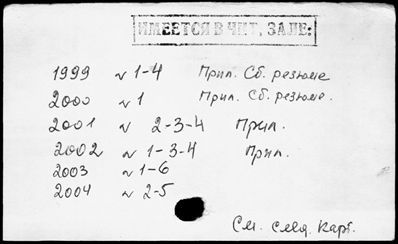 ИМЕЕТСЯ В ЧИТ. ЗАЛЕ:
1999 № 1-4 Прил. Сб. резюме
2000 № 1 Прил. Сб. резюме.
2001 № 2-3-4 Прил.
2002 № 1-3-4 Прил.
2003 № 1-6
2004 № 2-5
См. след. карт.